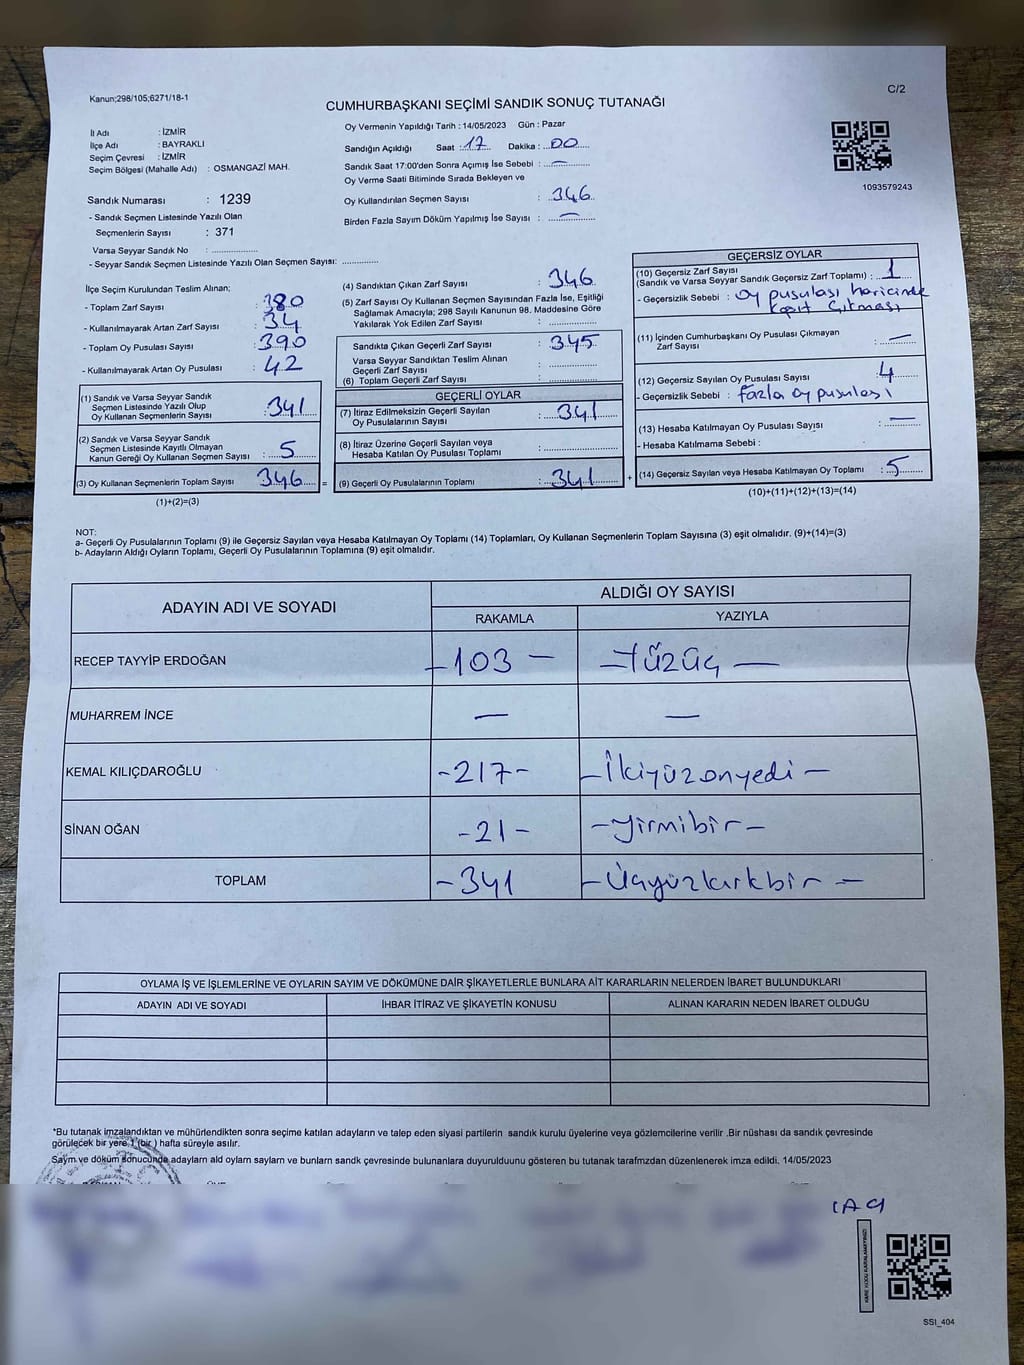 Kanun;298/105;6271/18-1
C/2
CUMHURBAŞKANI SEÇİMİ SANDIK SONUÇ TUTANAĞI
İl Adı : İZMİR
İlçe Adı : BAYRAKLI
Seçim Çevresi : İZMİR
Seçim Bölgesi (Mahalle Adı) : OSMANGAZİ MAH.
Oy Vermenin Yapıldığı Tarih : 14/05/2023 Gün : Pazar
Sandığın Açıldığı Saat : 17 Dakika : 00
Sandık Saat 17:00'den Sonra Açımış İse Sebebi : —
Oy Verme Saati Bitiminde Sırada Bekleyen ve
Oy Kullandırılan Seçmen Sayısı : 346
Birden Fazla Sayım Döküm Yapılmış İse Sayısı : —
1093579243
Sandık Numarası : 1239
- Sandık Seçmen Listesinde Yazılı Olan
Seçmenlerin Sayısı : 371
Varsa Seyyar Sandık No : ................
- Seyyar Sandık Seçmen Listesinde Yazılı Olan Seçmen Sayısı: .............
İlçe Seçim Kurulundan Teslim Alınan;
- Toplam Zarf Sayısı : 380
- Kullanılmayarak Artan Zarf Sayısı : 34
- Toplam Oy Pusulası Sayısı : 390
- Kullanılmayarak Artan Oy Pusulası : 42
(1) Sandık ve Varsa Seyyar Sandık
Seçmen Listesinde Yazılı Olup
Oy Kullanan Seçmenlerin Sayısı : 341
(2) Sandık ve Varsa Seyyar Sandık
Seçmen Listesinde Kayıtlı Olmayan
Kanun Gereği Oy Kullanan Seçmen Sayısı : 5
(3) Oy Kullanan Seçmenlerin Toplam Sayısı : 346 =
(1)+(2)=(3)
(4) Sandıktan Çıkan Zarf Sayısı : 346
(5) Zarf Sayısı Oy Kullanan Seçmen Sayısından Fazla İse, Eşitliği
Sağlamak Amacıyla; 298 Sayılı Kanunun 98. Maddesine Göre
Yakılarak Yok Edilen Zarf Sayısı : .............
Sandıkta Çıkan Geçerli Zarf Sayısı : 345
Varsa Seyyar Sandıktan Teslim Alınan
Geçerli Zarf Sayısı : .............
(6) Toplam Geçerli Zarf Sayısı : .............
GEÇERLİ OYLAR
(7) İtiraz Edilmeksizin Geçerli Sayılan
Oy Pusulalarının Sayısı : 341
(8) İtiraz Üzerine Geçerli Sayılan veya
Hesaba Katılan Oy Pusulası Toplamı : .............
(9) Geçerli Oy Pusulalarının Toplamı : 341 +
GEÇERSİZ OYLAR
(10) Geçersiz Zarf Sayısı
(Sandık ve Varsa Seyyar Sandık Geçersiz Zarf Toplamı) : 1
- Geçersizlik Sebebi : Oy pusulası haricinde
Kağıt Çıkması
(11) İçinden Cumhurbaşkanı Oy Pusulası Çıkmayan
Zarf Sayısı : —
(12) Geçersiz Sayılan Oy Pusulası Sayısı : 4
- Geçersizlik Sebebi : fazla oy pusulası
(13) Hesaba Katılmayan Oy Pusulası Sayısı : —
- Hesaba Katılmama Sebebi :
(14) Geçersiz Sayılan veya Hesaba Katılmayan Oy Toplamı : 5
(10)+(11)+(12)+(13)=(14)
NOT:
a- Geçerli Oy Pusulalarının Toplamı (9) ile Geçersiz Sayılan veya Hesaba Katılmayan Oy Toplamı (14) Toplamları, Oy Kullanan Seçmenlerin Toplam Sayısına (3) eşit olmalıdır. (9)+(14)=(3)
b- Adayların Aldığı Oyların Toplamı, Geçerli Oy Pusulalarının Toplamına (9) eşit olmalıdır.
ADAYIN ADI VE SOYADI ALDIĞI OY SAYISI
RAKAMLA YAZIYLA
RECEP TAYYİP ERDOĞAN – 103 – – Yüzüç –
MUHARREM İNCE — —
KEMAL KILIÇDAROĞLU -217- – İkiyüzonyedi –
SİNAN OĞAN -21- – yirmibir –
TOPLAM -341 – Üçyüzkırkbir –
OYLAMA İŞ VE İŞLEMLERİNE VE OYLARIN SAYIM VE DÖKÜMÜNE DAİR ŞİKAYETLERLE BUNLARA AİT KARARLARIN NELERDEN İBARET BULUNDUKLARI
ADAYIN ADI VE SOYADI İHBAR İTİRAZ VE ŞİKAYETİN KONUSU ALINAN KARARIN NEDEN İBARET OLDUĞU
*Bu tutanak imzalandıktan ve mühürlendikten sonra seçime katılan adayların ve talep eden siyasi partilerin sandık kurulu üyelerine veya gözlemcilerine verilir .Bir nüshası da sandık çevresinde
görülecek bir yere 1 (bir ) hafta süreyle asılır.
Sayım ve döküm sonucunda adayların ald oyların sayları ve bunların sandk çevresinde bulunanlara duyurulduunu gösteren bu tutanak tarafmzdan düzenlenerek imza edildi. 14/05/2023
KARE KODU KARALAMAYINIZ!
SSI_404